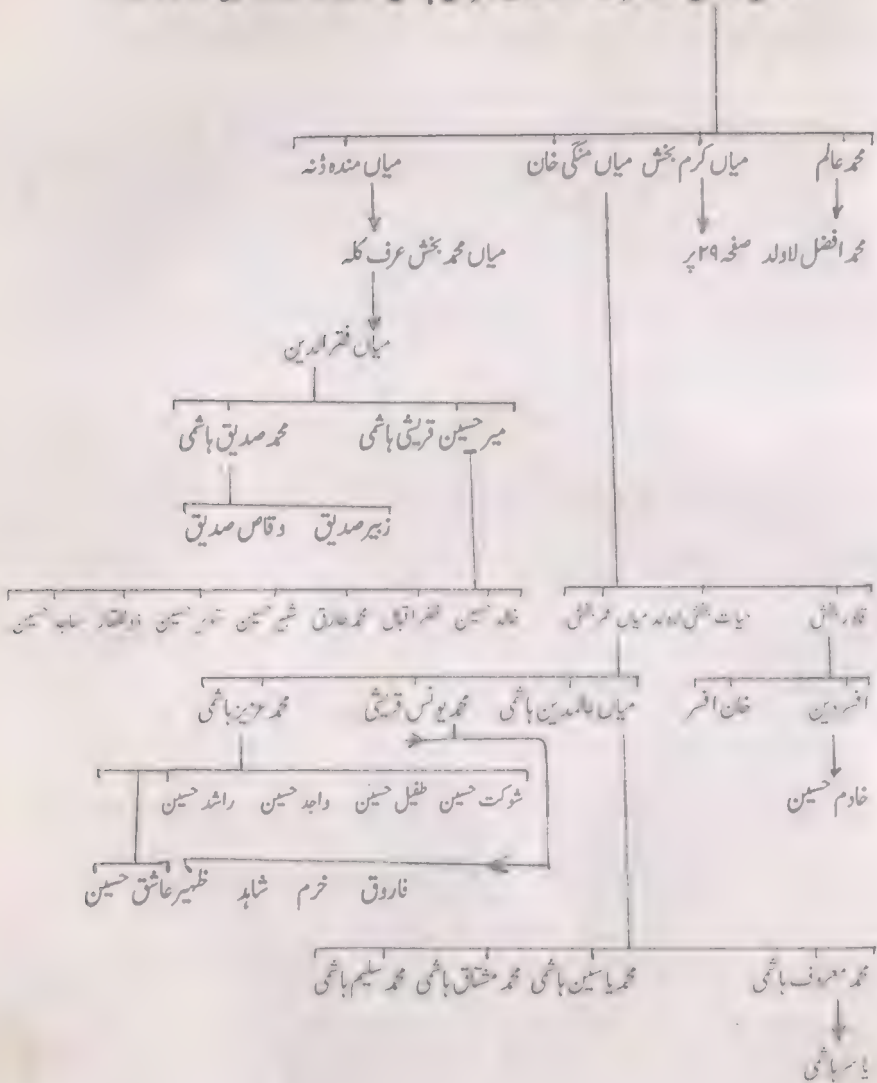 محمد عالم میاں کرم بخش میاں منگی خان میاں مندہ ڈنہ
محمد افضل لاولد صفحہ ۲۹ پر میاں محمد بخش عرف کلہ
میاں فقر الدین
میر حسین قریشی ہاشمی محمد صدیق ہاشمی
زبیر صدیق وقاص صدیق
قادر بخش حیات بخش لاولد میاں عمر بخش خالد حسین ظفر اقبال محمد طارق شبیر حسین تنویر حسین ذوالفقار ساجد حسین
میاں عالمدین ہاشمی محمد یونس قریشی محمد عزیز ہاشمی
افسر دین خان افسر
شوکت حسین طفیل حسین واجد حسین راشد حسین
خادم حسین
فاروق خرم شاہد ظہیر عاشق حسین
محمد معروف ہاشمی محمد یاسین ہاشمی محمد مشتاق ہاشمی محمد سلیم ہاشمی
یاسر ہاشمی